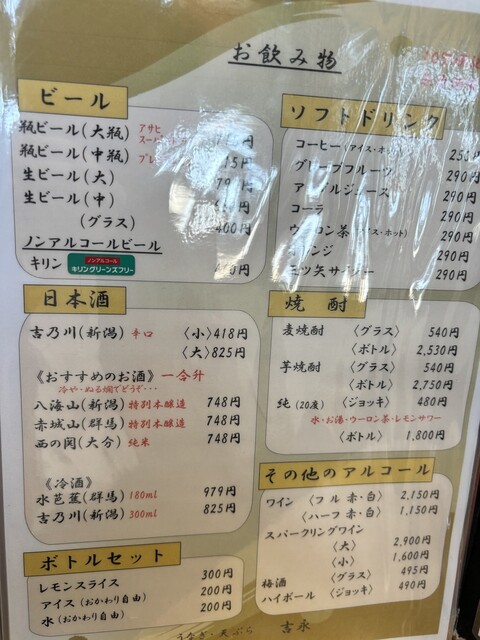 お飲み物
ビール
瓶ビール(大瓶) アサヒ
瓶ビール(中瓶)
生ビール(大)
生ビール(中)
(グラス) 400円
ノンアルコールビール
キリン ノンアルコール キリングリーンズフリー
日本酒
吉乃川(新潟) 辛口 〈小〉418円
〈大〉825円
《おすすめのお酒》 一合升
冷や・ぬる燗でどうぞ・・・
八海山(新潟) 特別本醸造 748円
赤城山(群馬) 特別本醸造 748円
西の関(大分) 純米 748円
《冷酒》
水芭蕉(群馬) 180ml 979円
吉乃川(新潟) 300ml 825円
ボトルセット
レモンスライス 300円
アイス(おかわり自由) 200円
水(おかわり自由) 200円
ソフトドリンク
コーヒー(アイス・ホット) 250円
グレープフルーツ 290円
アップルジュース 290円
コーラ 290円
ウーロン茶(アイス・ホット) 290円
オレンジ 290円
三ツ矢サイダー 290円
焼酎
麦焼酎 〈グラス〉 540円
〈ボトル〉 2,530円
芋焼酎 〈グラス〉 540円
〈ボトル〉 2,750円
純(20度) 〈ジョッキ〉 480円
水・お湯・ウーロン茶・レモンサワー
〈ボトル〉 1,800円
その他のアルコール
ワイン 〈フル 赤・白〉 2,150円
〈ハーフ 赤・白〉 1,150円
スパークリングワイン
〈大〉 2,900円
〈小〉 1,600円
梅酒 〈グラス〉 495円
ハイボール 〈ジョッキ〉 490円
うなぎ・天ぷら 吉永